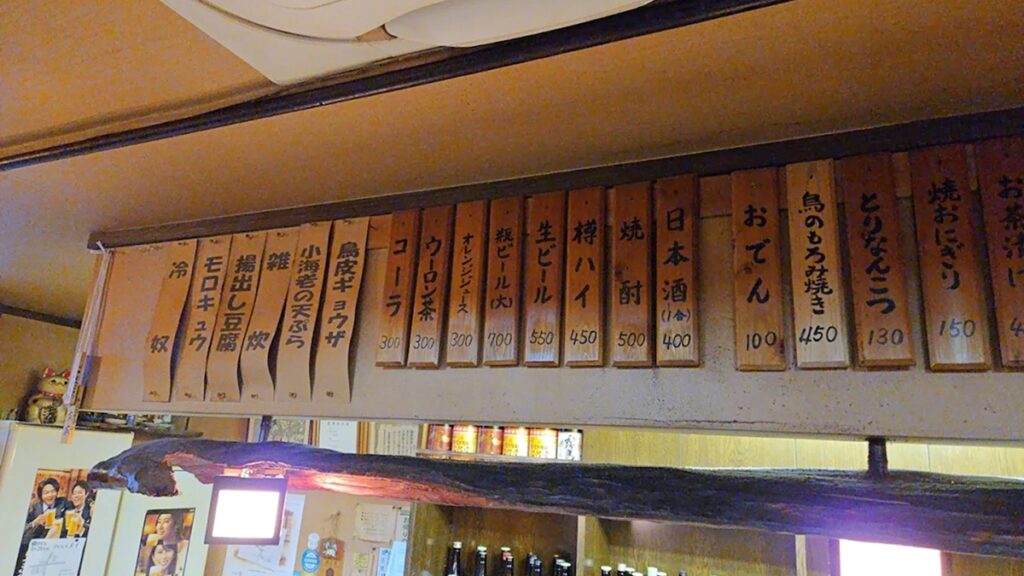 お茶漬け
焼おにぎり
150
とりなんこつ
130
鳥のもろみ焼き
450
おでん
100
日本酒
(1合)
400
焼酎
500
樽ハイ
450
生ビール
550
瓶ビール(大)
700
オレンジジュース
300
ウーロン茶
300
コーラ
300
鳥皮ギョウザ
小海老の天ぷら
雑炊
揚出し豆腐
モロキュウ
冷奴